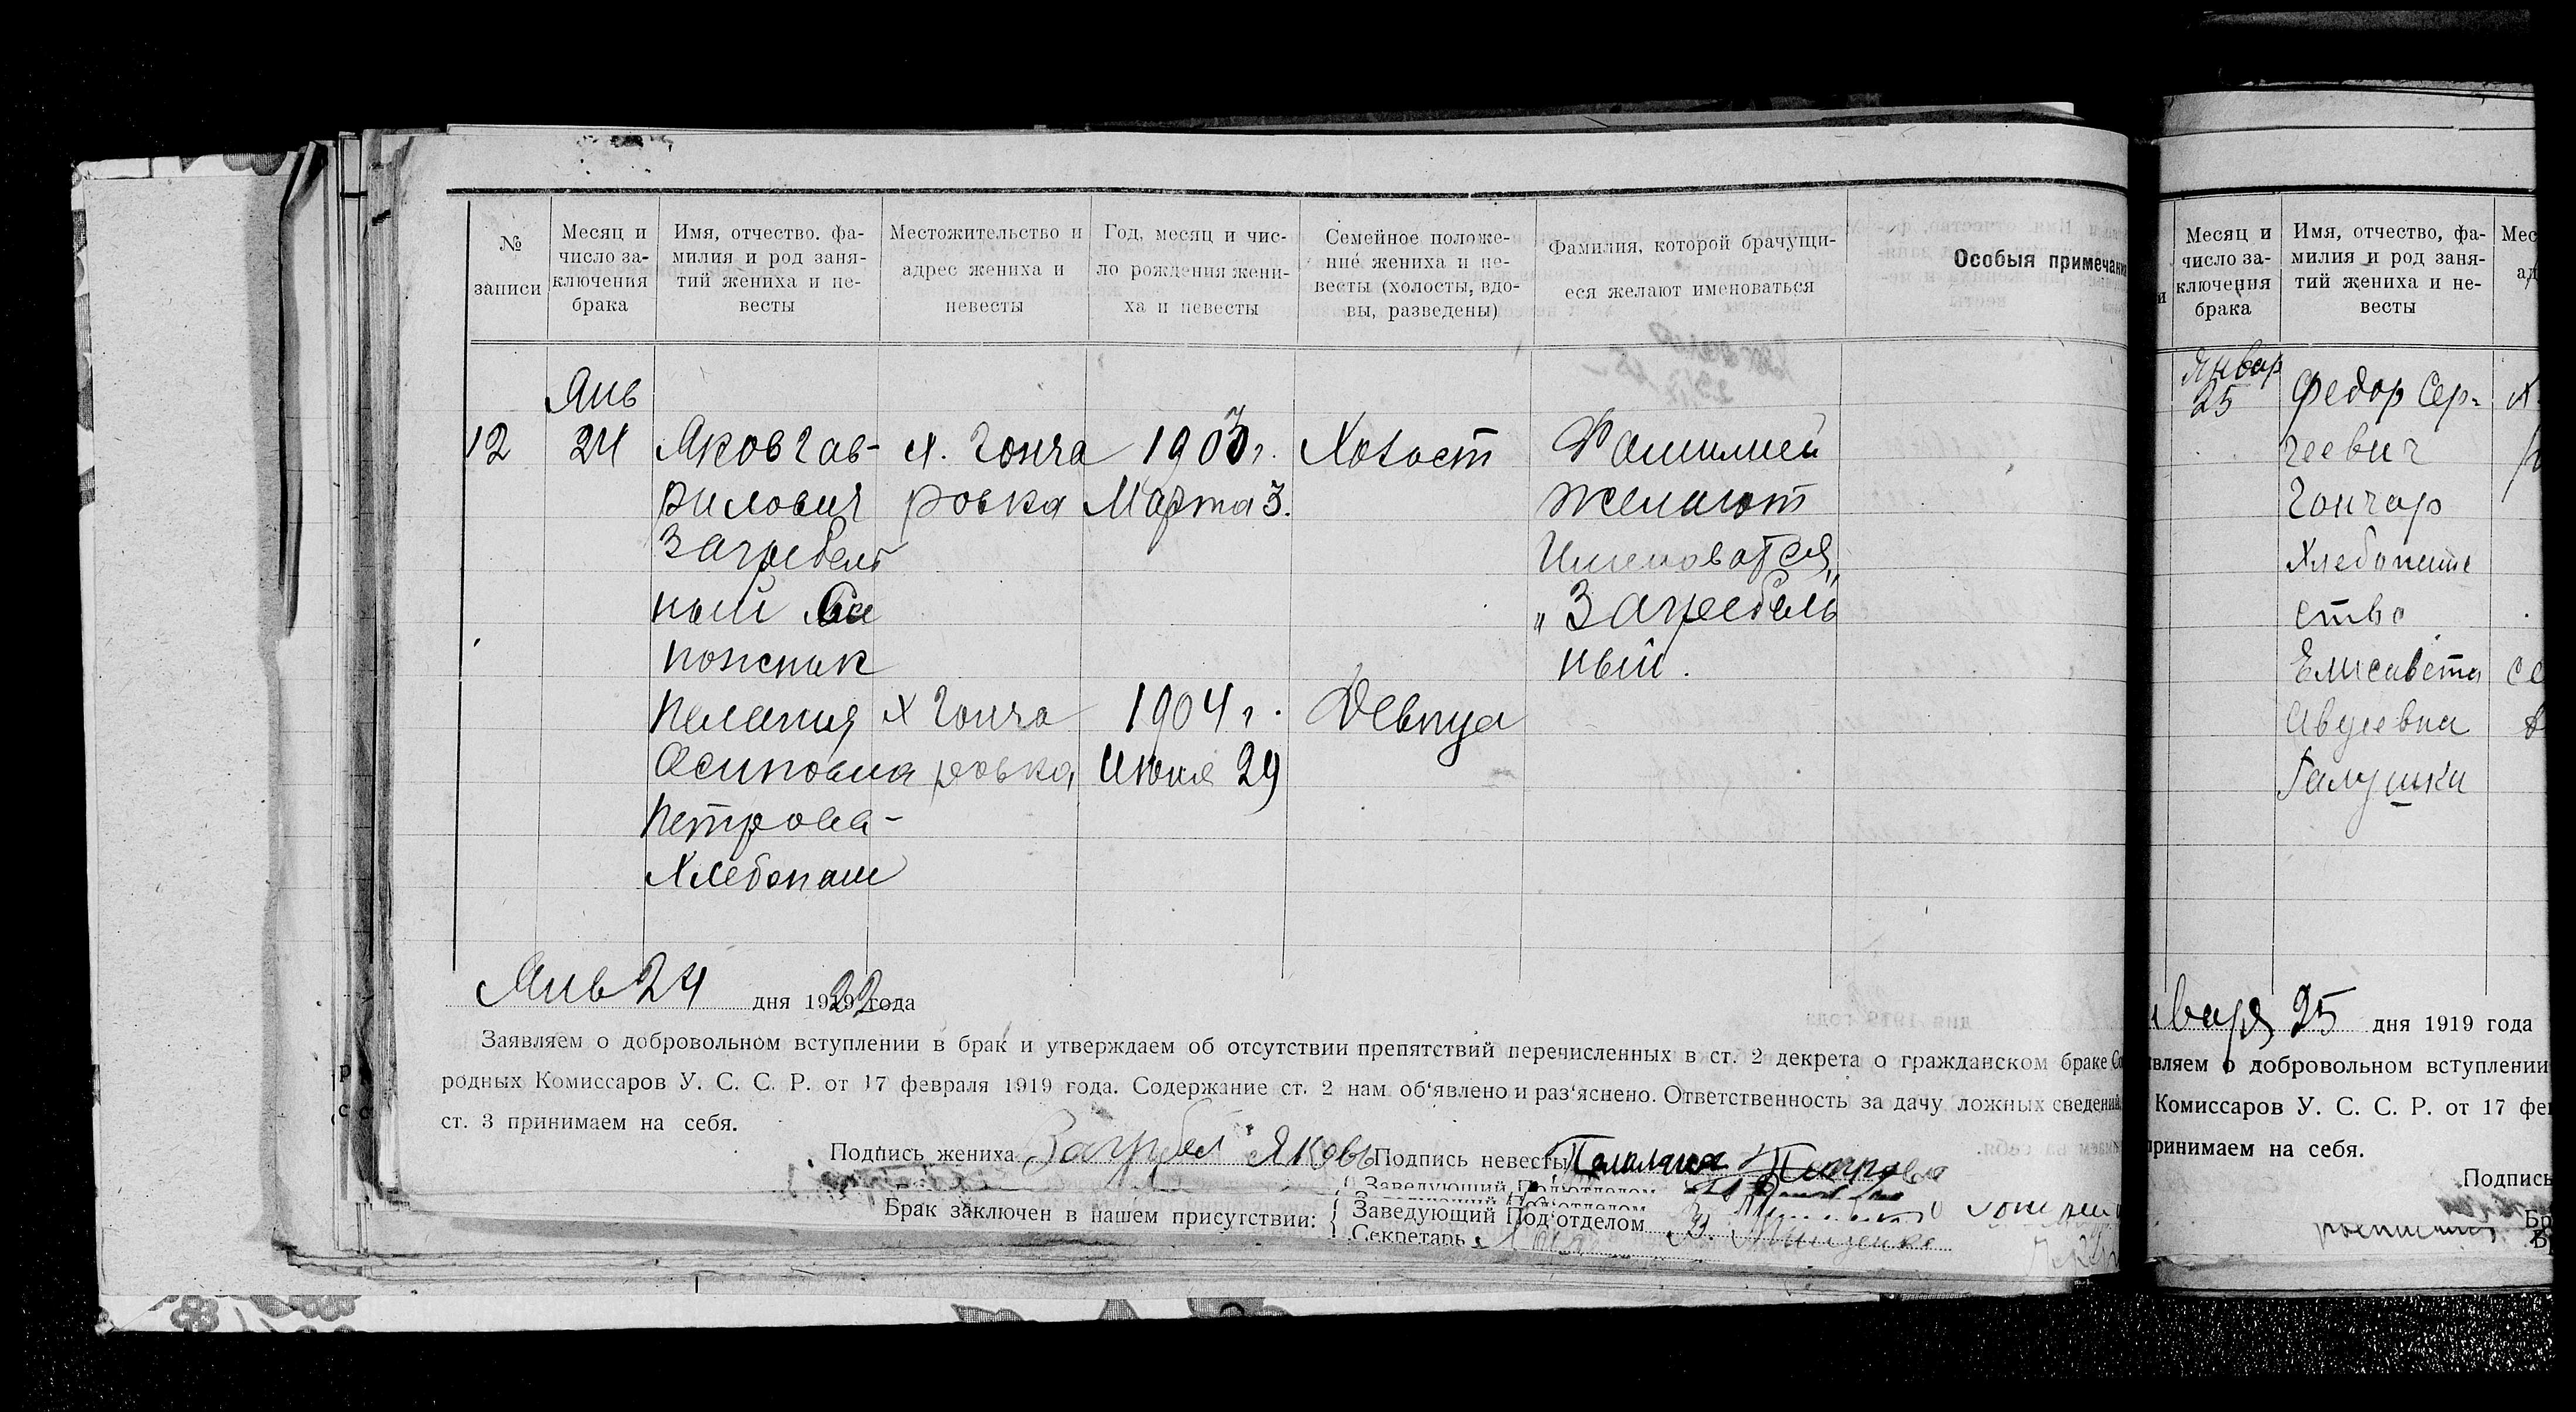 № записи
Месяц и число заключения брака
Имя, отчество. фа-
милия и род заня-
тий жениха и не-
весты
Местожительство и
адрес жениха и
невесты
Год, месяц и чис-
ло рождения жени-
ха и невесты
Семейное положе-
ние жениха и не-
весты (холосты, вдо-
вы, разведены)
Фамилия, которой брачущи-
еся желают именоваться
Особыя примечани
12
Янв
24
Яков Гав-
рилович
Загребель
ный Са
пожник
х. Гонча
ровка
1903 г.
Марта 3.
Холост
Фамилией
желают
Именоватся
„Загребель
ный.
Пелагия
Осиповна
Петрова-
Хлебопаш
х Гонча
ровка
1904 г.
Июня 29
Девица
Янв 24 дня 1922 года
Заявляем о добровольном вступлении в брак и утверждаем об отсутствии препятствий перечисленных в ст. 2 декрета о гражданском браке Со
родных Комиссаров У. С. С. Р. от 17 февраля 1919 года. Содержание ст. 2 нам об‘явлено и раз‘яснено. Ответственность за дачу ложных сведений,
ст. 3 принимаем на себя.
Подпись жениха Загрбел Яковь Подпись невесты Петрова
Заведующий Под‘отделом
Брак заключен в нашем присутствии: Заведующий Под‘отделом
Секретарь
Месяц и
число за-
ключения
брака
Имя, отчество, фа-
милия и род заня-
тий жениха и не-
весты
Мес
ад
Январ
25
Федор Сер-
геевич
Гончар
Хлебопаше
ство
Елисавета
Авдеевна
Галушка
х
се
января 25 дня 1919 года
вляем о добровольном вступлении
Комиссаров У. С. С. Р. от 17 фе
принимаем на себя.
Подпись
Бр